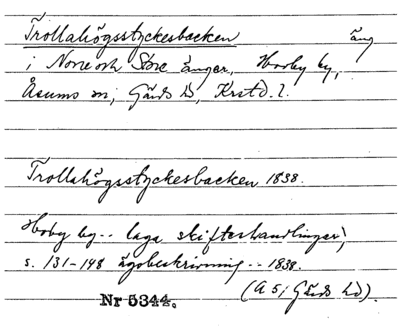 Trollahögsstyckesbacken äng
i Norre och Store änger, Horby by,
Åsums sn, Gärds hd, Krstd. l.
Trollahögsstyckesbacken 1838.
Horby by -- laga skifteshandlingar,
s. 131-148 ägobeskrivning -- 1838.
(A 5; Gärds hd).
Nr 5344.